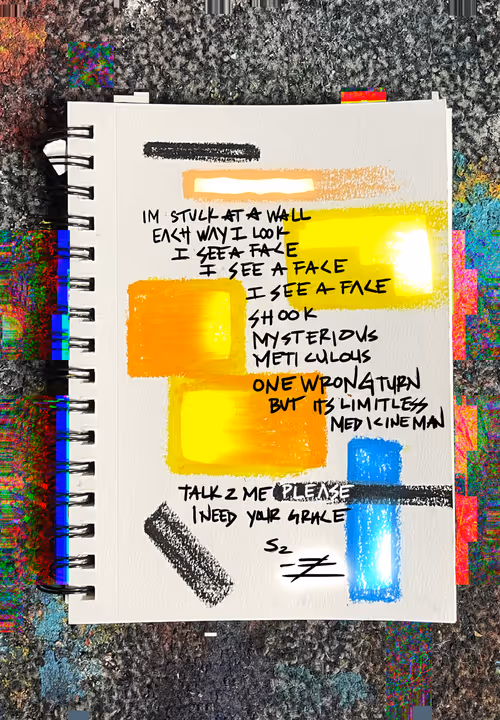 IM STUCK AT A WALL
EACH WAY I LOOK
I SEE A FACE
I SEE A FACE
I SEE A FACE
SHOOK
MYSTERIOUS
METICULOUS
ONE WRONG TURN
BUT ITS LIMITLESS
MEDICINE MAN
TALK 2 ME PLEASE
I NEED YOUR GRACE
S2